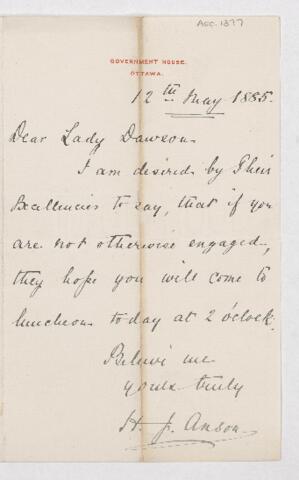 Acc. 1377
GOVERNMENT HOUSE.
OTTAWA.
12th May 1885.
Dear Lady Dawson
I am desired by Their
Excellencies to say, that if you
are not otherwise engaged,
they hope you will come to
luncheon today at 2 o'clock.
Believe me
yours truly
H. J. Anson